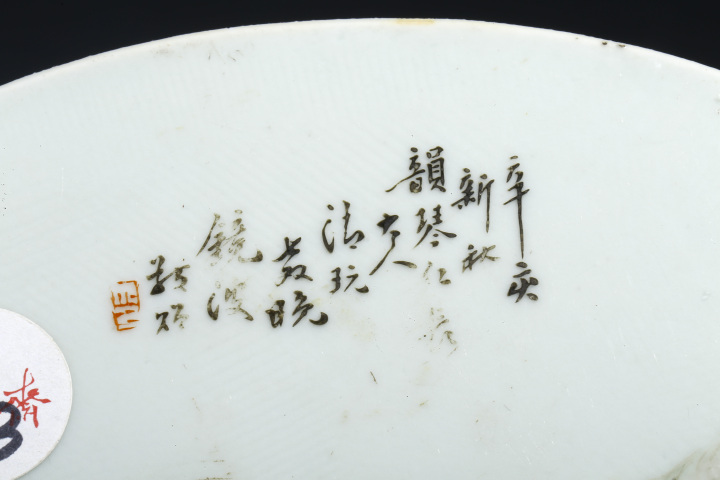 辛亥
新秋
韻琴仁兄
大人
清玩
教晚
鏡波
3